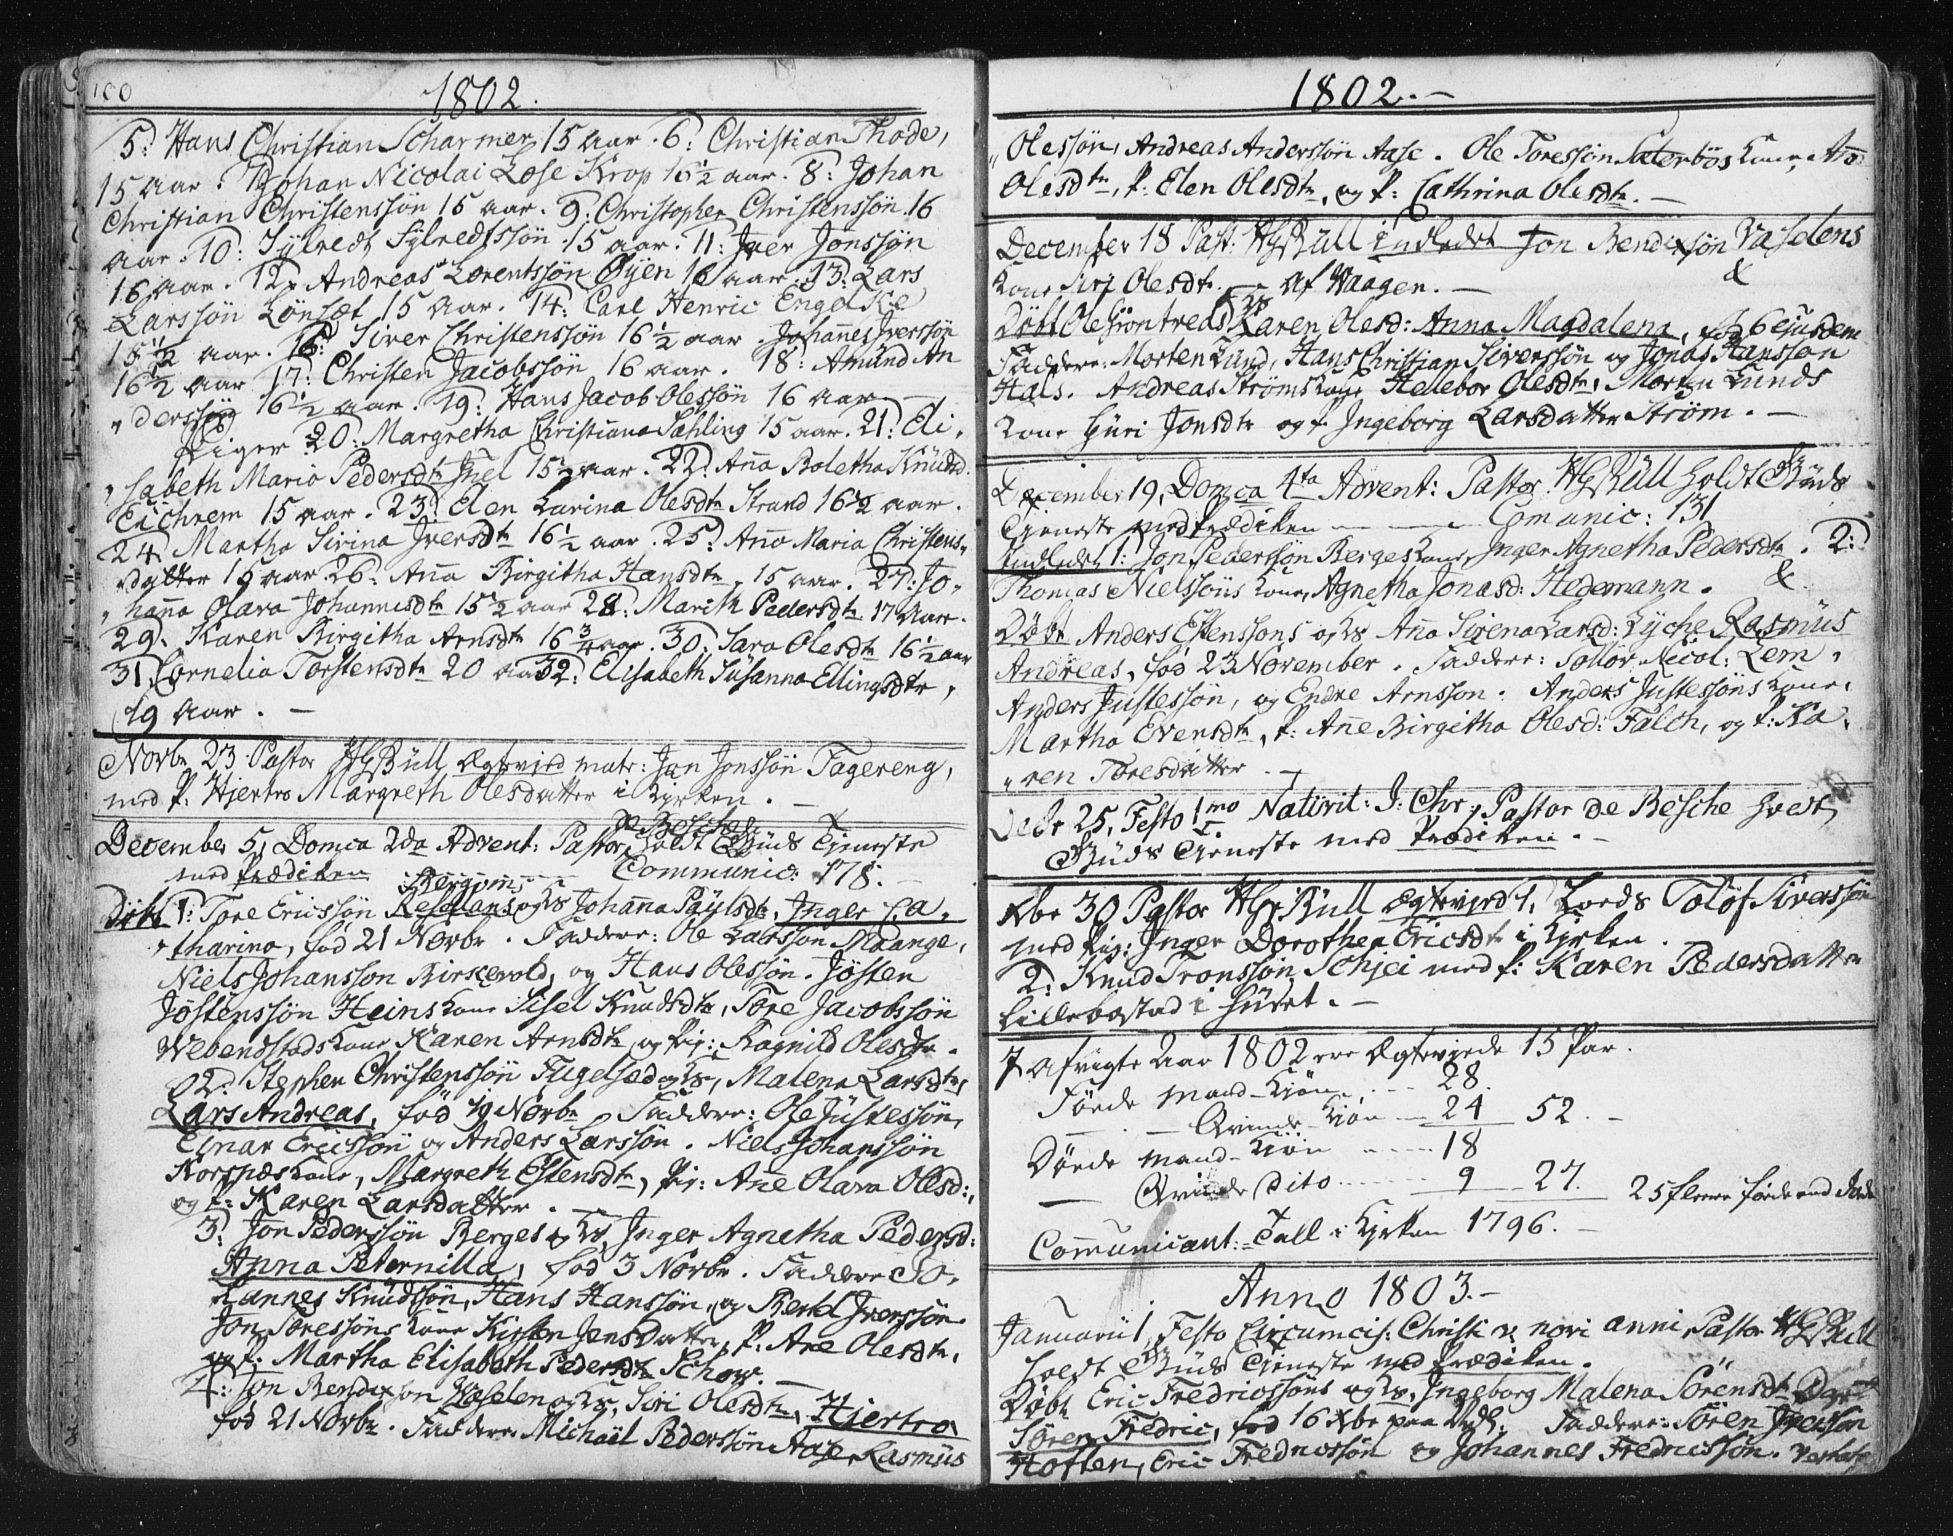 100
1802.
5. Hans Christian Scharmer 15 aar. 6: Christian Thode,
15 aar. 7. Johan Nicolai Lose Krop 16½ aar. 8: Johan
Christian Christenssön 15 aar. 9: Christopher Christenssön 16
aar. 10: 15 aar. 11: Iver Jonssøn
16 aar. 12. Andreas Lorentssön Øyen 16 aar. 13: Lars
Larssön Lönsæt 15 aar. 14: Carl Henric Engelke
15½ aar. 16: Siver Christenssön 16½ aar. Johannes Iverssön
16½ aar 17: Christen Jacobssön 16 aar. 18: Amund An
„ derssøn 16½ aar. 19: Hans Jacob Olessön 16 aar. —
Piger 20: Margretha Christiana Sahling 15 aar. 21: Eli„
„ sabeth Maria Pedersdtr Juel 15½ aar. 22: Anna Boletha Knudsd.
Eichrem 15 aar. 23: Elen Carina Olesdtr Strand 16½ aar.
24 Martha Sirina Iversdtr 16½ aar. 25: Anna Maria Christens„
„ datter 15 aar 26: Anna Birgitha Hansdtr 15 aar. 27: Jo„
„ hanna Olava Johannisdtr 15½ aar 28: Marith Pedersdtr 17 Aar.
29. Karen Birgitha Arnsdtr 16¾ aar. 30: Sara Olesdtr 16½ aar
31. Cornelia Torstensdtr 20 aar 32: Elisabeth Susanna Ellingsdtr,
19 Aar. —
Novbr 23 Pastor HG Büll Ægtevied matr: Jon Jonssön Fagereng,
med P: Hjertro Margreth Olesdatter i Kirken. —
December 5, Domca 2da Advent: Pastor de Besche holdt Guds Tieneste
med Prædiken Communic: 178.
Döbt 1: Tore Ericssön Bergum og Ks Johanna Paulsdtr, Inger Ca„
„ tharina, föd 21 Novbr. Faddere: Ole Larssön Maange,
Niels Johanssön Birkevold, og Hans Olessön. Jösten
Jöstenssön Heins Kone Sisel Knudsdtr, Tore Jacobssön
Webenstads Kone Karen Arnsdtr og Pig: Ragnild Olesdtr.
2: Stephen Christenssön Fugelsæd og Ks, Malena Larsdtr,
Lars Andreas, föd 19 Novbr. Faddere: Ole Justessön,
Einar Ericssön og Anders Larssön. Niels Johanssön
Korsnæs Kone, Margreth Estensdtr, Pig: Ane Olava Olesd:,
og P: Karen Larsdatter.
3: Jon Pederssön Berges og Ks, Inger Agnetha Pedersd:
Anna Peternilla, föd 3 Novbr. Faddere Jo„
hannes Knudssön, Hans Hanssön, og Bertel Iverssön
Jon Toressöns Kone Kirsten Jensdatter, P: Ane Olesdtr,
og P: Martha Elisabeth Pedersdtr Schow. —
4: Jon Bendixson Vaselen og Ks, Siri Olesdtr, Hjertro
föd 21 Novbr. Faddere Michael Pederssön Aase, Rasmus
1802. —
„ Olessön, Andreas Anderssön Aase. Ole Toressön Sæterbös Kone, An
Olesdtr, P: Elen Olesdtr, og P: Cathrina Olesdtr. —
December 18 Past: HG Büll indledet Jon Bendixsön Vaselens
Kone Siri Olesdtr. — af Waagen. — &
Döbt Ole Gröntreds og Ks Karen Olesd: Anna Magdalena, föd 6 ejusdem
Faddere: Morten Lund, Hans Christian Siverssön og Jonas Hansson
Hals. Andreas Ströms Kone Hellebor Olesdtr, Morten Lunds
Kone Guri Jonsdtr og P. Ingeborg Larsdatter Ström. —
December 19, Domca 4ta Advent: Pastor HG Büll holdt Guds
Tieneste med Prædiken — — — Comunic: 131
Indledet 1: Jon Pederssön Berges Kone, Inger Agnetha Pedersdtr. 2:
Thomas Nielssöns Kone, Agnetha Jonasd: Hedemann. &
Döbt Anders Estenssons og Ks Anna Sirena Larsd: Lyche Rasmus
Andreas, föd 23 November. Faddere: Nicol: Lem,
Anders Justessön, og Endre Arnsson. Anders Justessöns Kone,
Martha Evensdtr, P: Ane Birgitha Olesd: Falch, og P: Ka„
„ ren Toresdatter. —
Debr 25, Festo 1mo Nativit: J: Chr:, Pastor De Besche holdt
Guds Tieneste med Prædiken. —
Xbr 30 Pastor HG Büll Ægtevied 1, Tolöf Siverssön
med Pig: Inger Dorothea Ericsdtr i Kirken.
2: Knud Tronssön Schjei med P: Karen Pedersdatter
Lillebostad i Huset. —
I afvigte Aar 1802 ere Ægteviede 15 Par.
Födde Mand-Kiön . . . — 28.
— — Qvinde-Kiön — 24 52. —
Döede Mand-Kiön . . . . . 18
— Qvinde Dito . . . . . . 9 27. 25 flere födde end döde
Communicant: Tall i Kirken 1796. —
Anno 1803. —
Januarii 1, Festo Circumcis: Christi & novi anni Pastor HG Büll
holdt Guds Tieneste med Prædiken.
Döbt Eric Fredricssöns og Ks, Ingeborg Malena Sörensdtr
Sören Fredric, föd 16 Xbr paa Faddere: Sören
Hoften, Eric Fredricssön og Johannes Fredricssön.